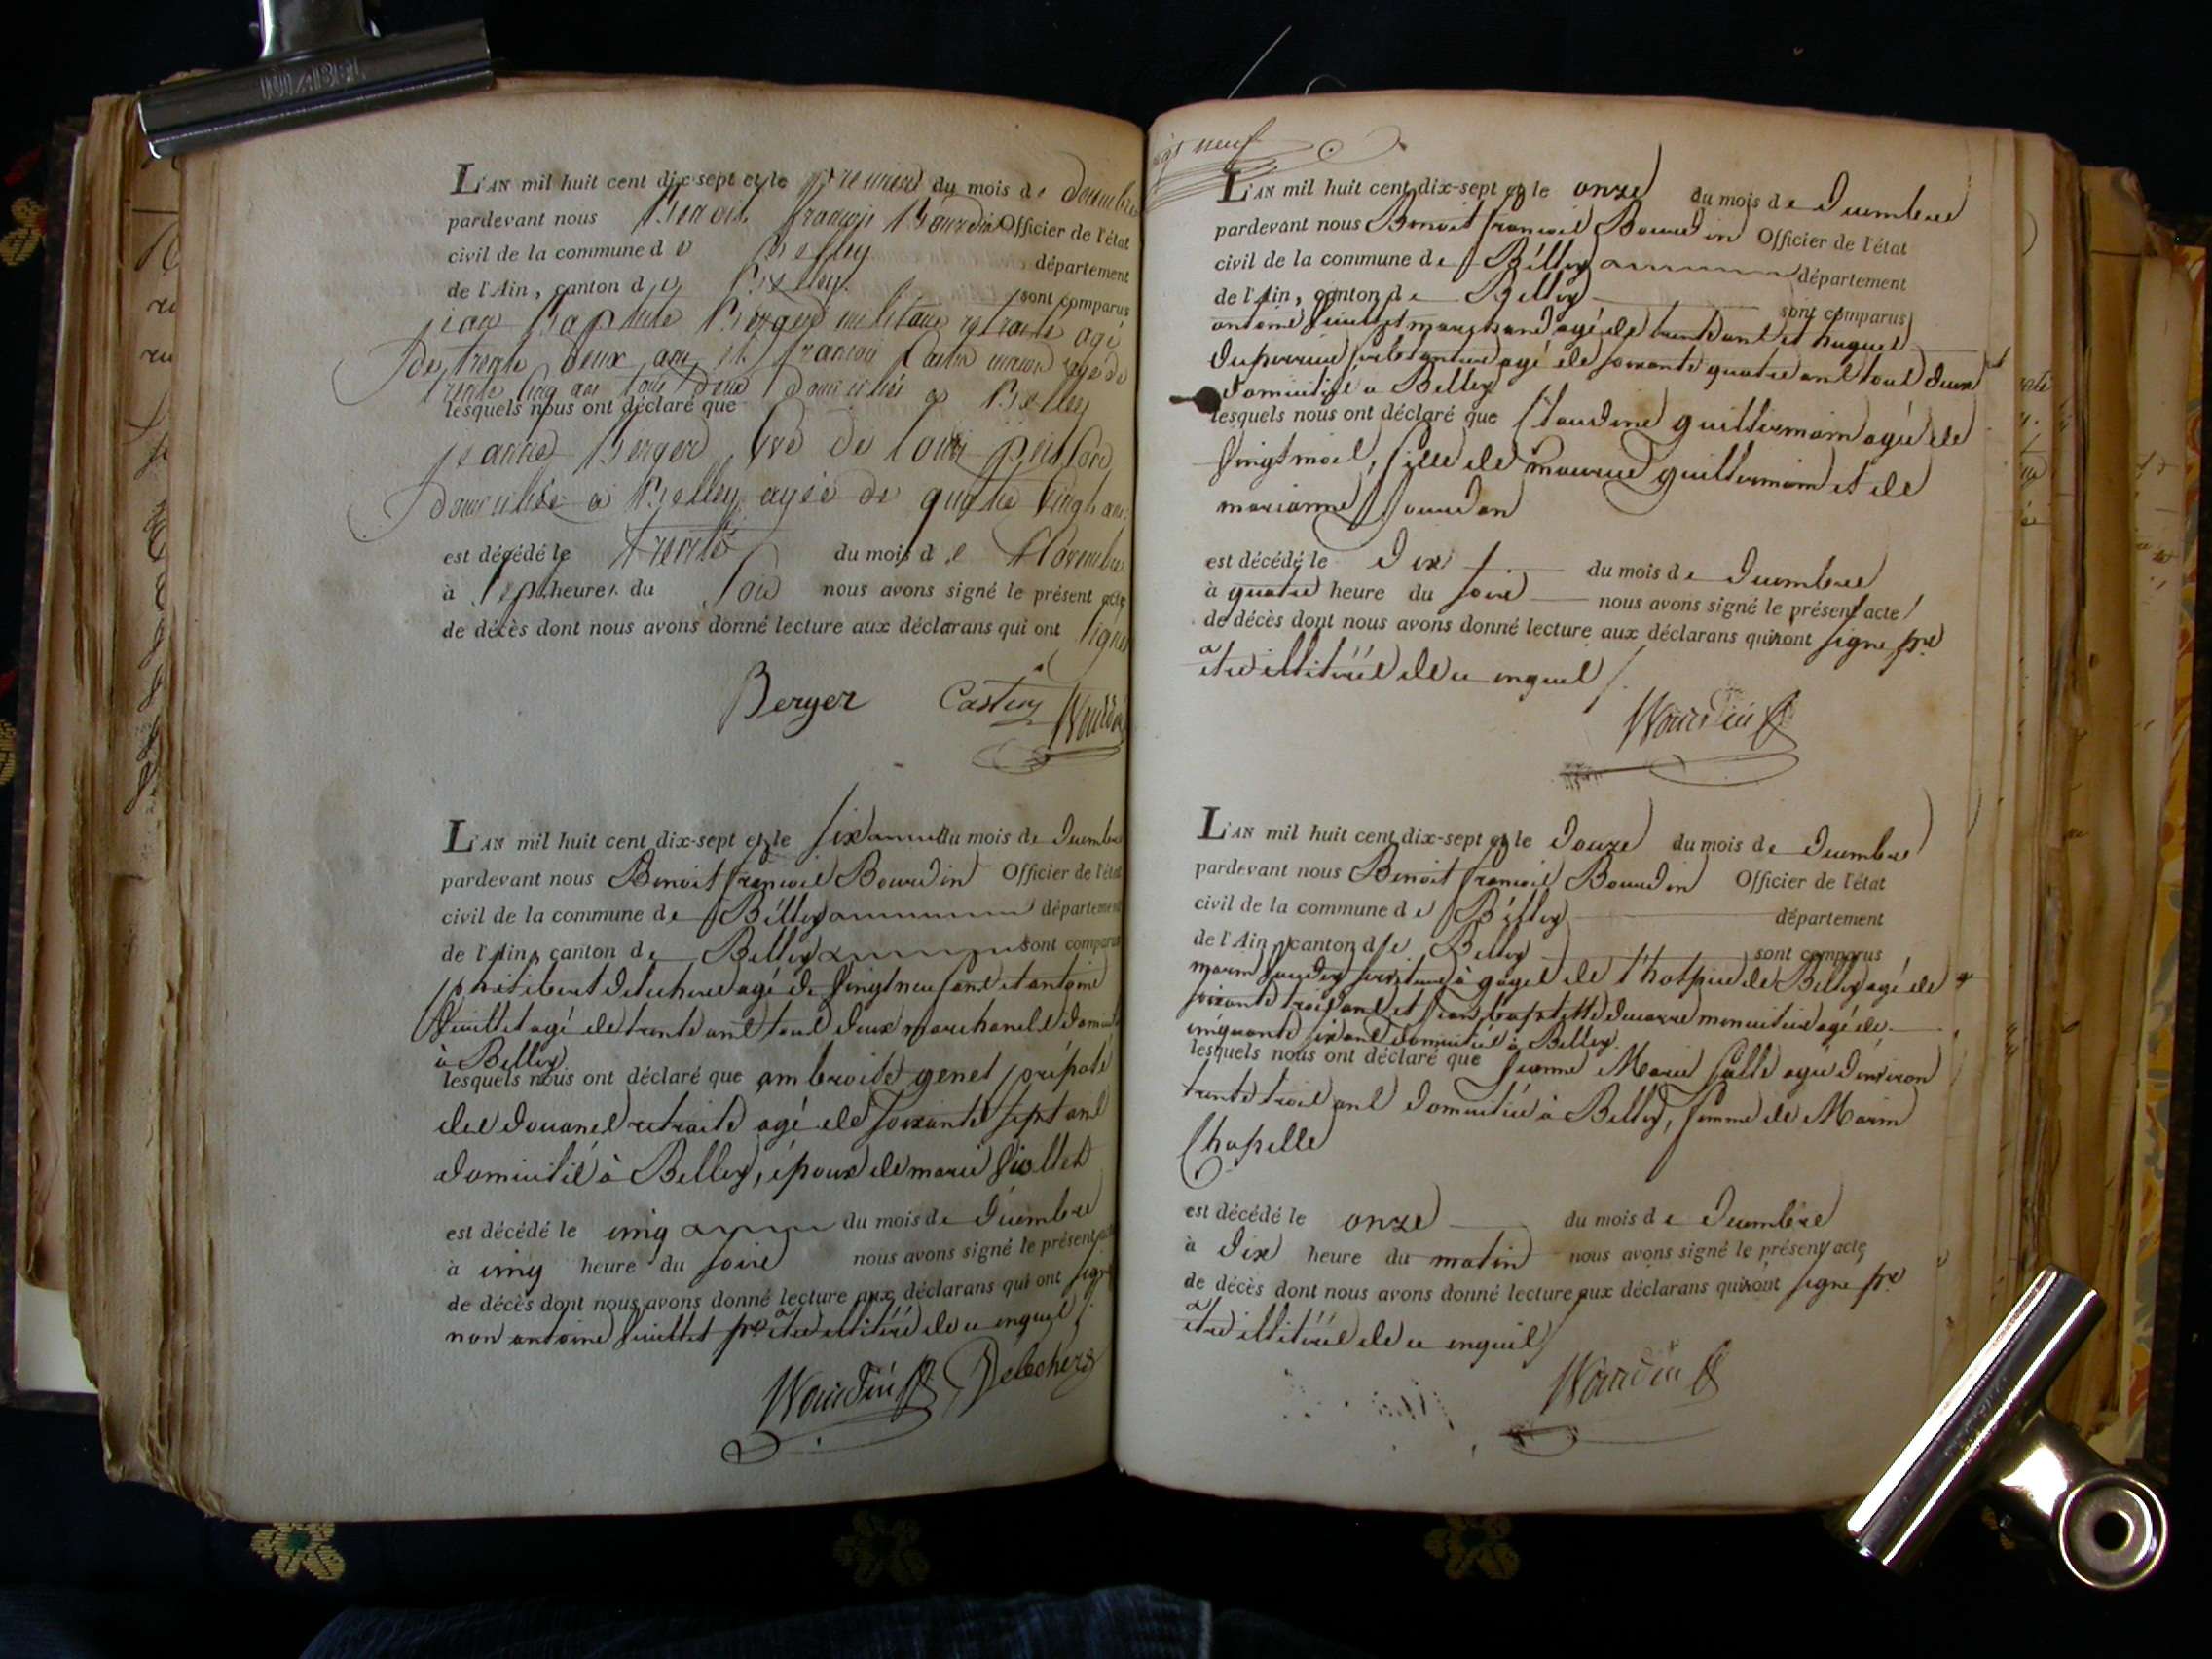 L'AN mil huit cent dix-sept et le premier du mois de decembre
pardevant nous Benoit françois Bourdin Officier de l'état
civil de la commune de Belley département
de l'Ain, canton de Belley sont comparus
jean Baptiste Berger militaire retraité agé
de trente deux ans et francois Castin agé de
trente cinq ans tous deux domiciliés a Belley
lesquels nous ont déclaré que
jeanne Berger Vve de louis
domiciliée a Belley agée de quatre vingt ans
est décédé le trente du mois de Novembre
à sept heures du soir nous avons signé le présent acte
de décès dont nous avons donné lecture aux déclarans qui ont signé
Berger Castin Bourdin
L'AN mil huit cent dix-sept et le six du mois de decembre
pardevant nous Benoit françois Bourdin Officier de l'état
civil de la commune de Belley département
de l'Ain, canton de Belley sont comparus
philibert delechere agé de vingt neuf ans et antoine
Vuillet agé de trente ans tous deux marchands domiciliés
à Belley
lesquels nous ont déclaré que ambroise genet préposé
des douanes retraité agé de soixante sept ans
domicilié à Belley, époux de marie Viollet
est décédé le cinq du mois de décembre
à cinq heure du soire nous avons signé le présent acte
de décès dont nous avons donné lecture aux déclarans qui ont signé
non antoine Vuillet pre être illitéré de ce enquil
Bourdin Delechere
neuf
L'AN mil huit cent dix-sept et le onze du mois de decembre
pardevant nous Benoit françois Bourdin Officier de l'état
civil de la commune de Belley département
de l'Ain, canton de Belley sont comparus
antoine Vuillet marchand agé de trente ans et hugues
duperrier ferblantier agé de soixante quatre ans tous deux
domicilié à Belley
lesquels nous ont déclaré que Claudine guillermain agée de
vingt mois, fille de maurice guillermain et de
marianne Jourdan
est décédé le dix du mois de decembre
à quatre heure du soire nous avons signé le présent acte
de décès dont nous avons donné lecture aux déclarans qui n'ont signe pre
être illitérés de ce enquil
Bourdin
L'AN mil huit cent dix-sept et le douze du mois de decembre
pardevant nous Benoit françois Bourdin Officier de l'état
civil de la commune de Belley département
de l'Ain, canton de Belley sont comparus
marin serviteur à gages de l'hospice de Belley agé de
soixante trois ans et jean baptiste ducarre menuisier agé de
cinquante six ans domiciliés à Belley.
lesquels nous ont déclaré que jeanne Marie Salle agée d'environ
trente trois ans domiciliée à Belley, femme de Marin
Chapelle
est décédé le onze du mois de decembre
à dix heure du matin nous avons signé le présent acte
de décès dont nous avons donné lecture aux déclarans qui n'ont signe pre
être illitérés de ce enquil
Bourdin